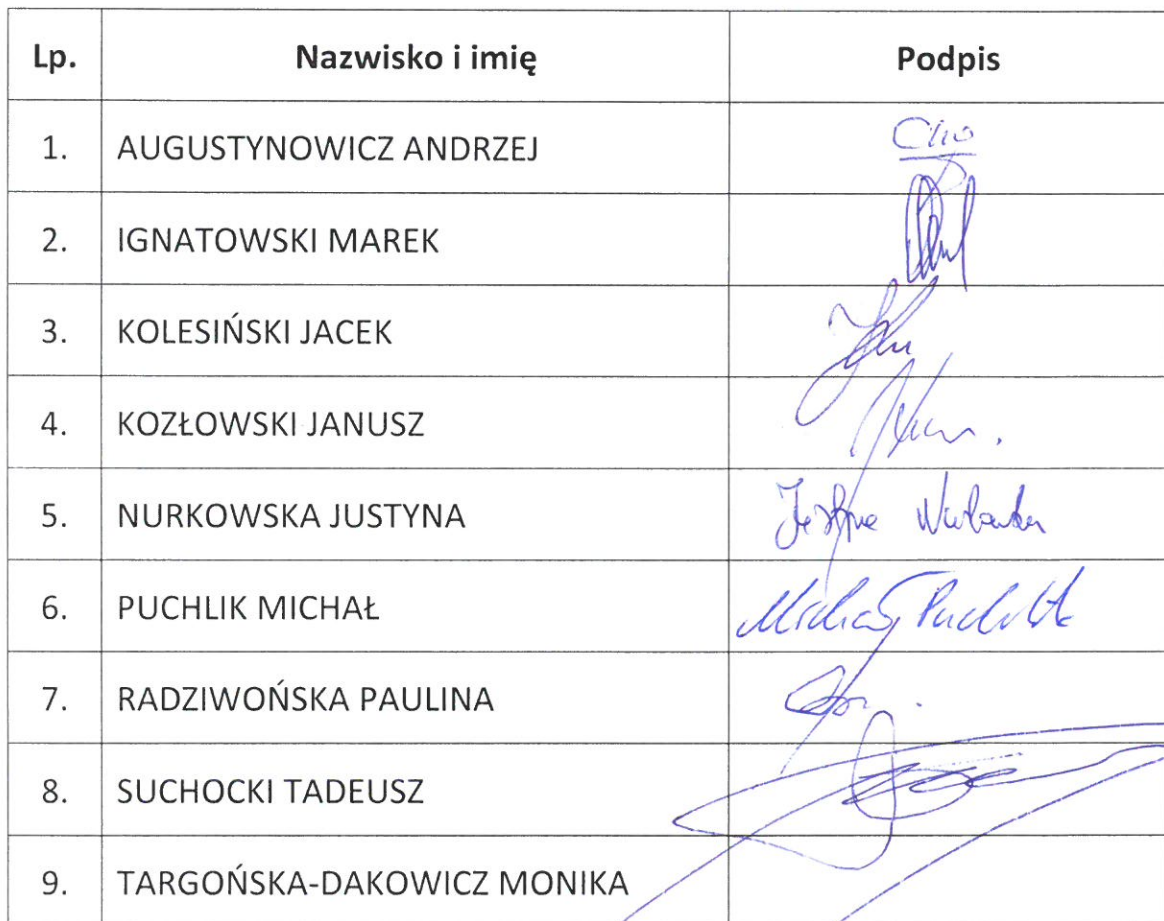 Lp. Nazwisko i imię Podpis
1. AUGUSTYNOWICZ ANDRZEJ
2. IGNATOWSKI MAREK
3. KOLESIŃSKI JACEK
4. KOZŁOWSKI JANUSZ
5. NURKOWSKA JUSTYNA
6. PUCHLIK MICHAŁ Michał Puchlik
7. RADZIWOŃSKA PAULINA
8. SUCHOCKI TADEUSZ
9. TARGOŃSKA-DAKOWICZ MONIKA